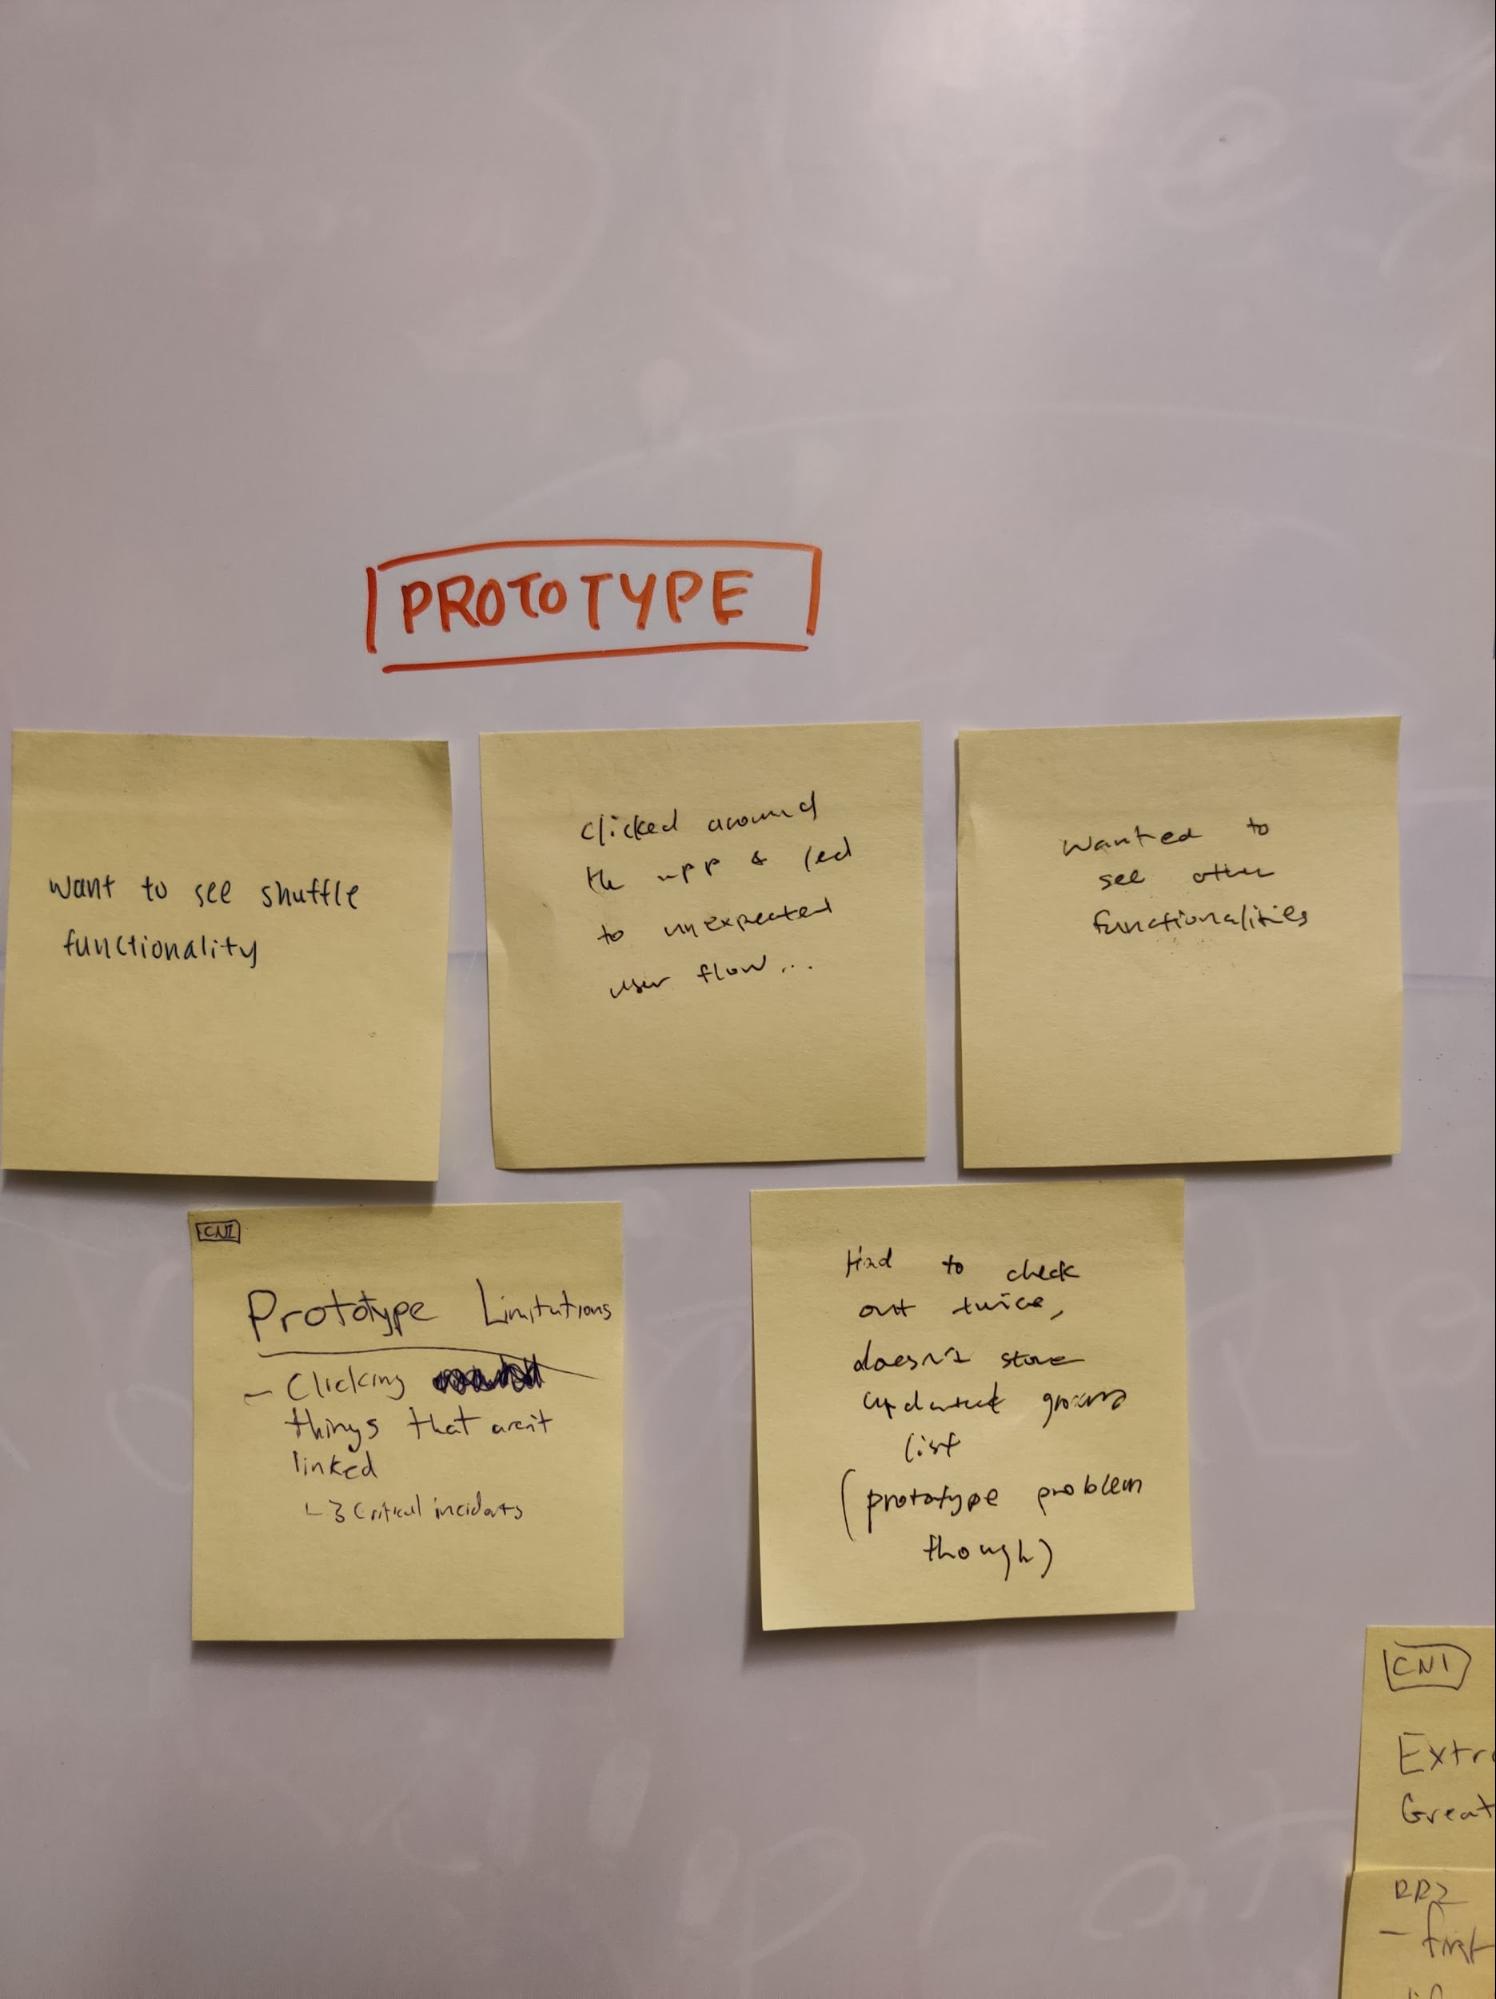 PROTOTYPE
want to see shuffle
functionality
clicked around
the app & led
to unexpected
user flow...
wanted to
see other
functionalities
CN1
Prototype Limitations
- Clicking
things that aren't
linked
↳ 3 critical incidents
Had to check
out twice,
doesn't store
updated
list
(prototype problem
though)
CN1
Extr
Great
- first